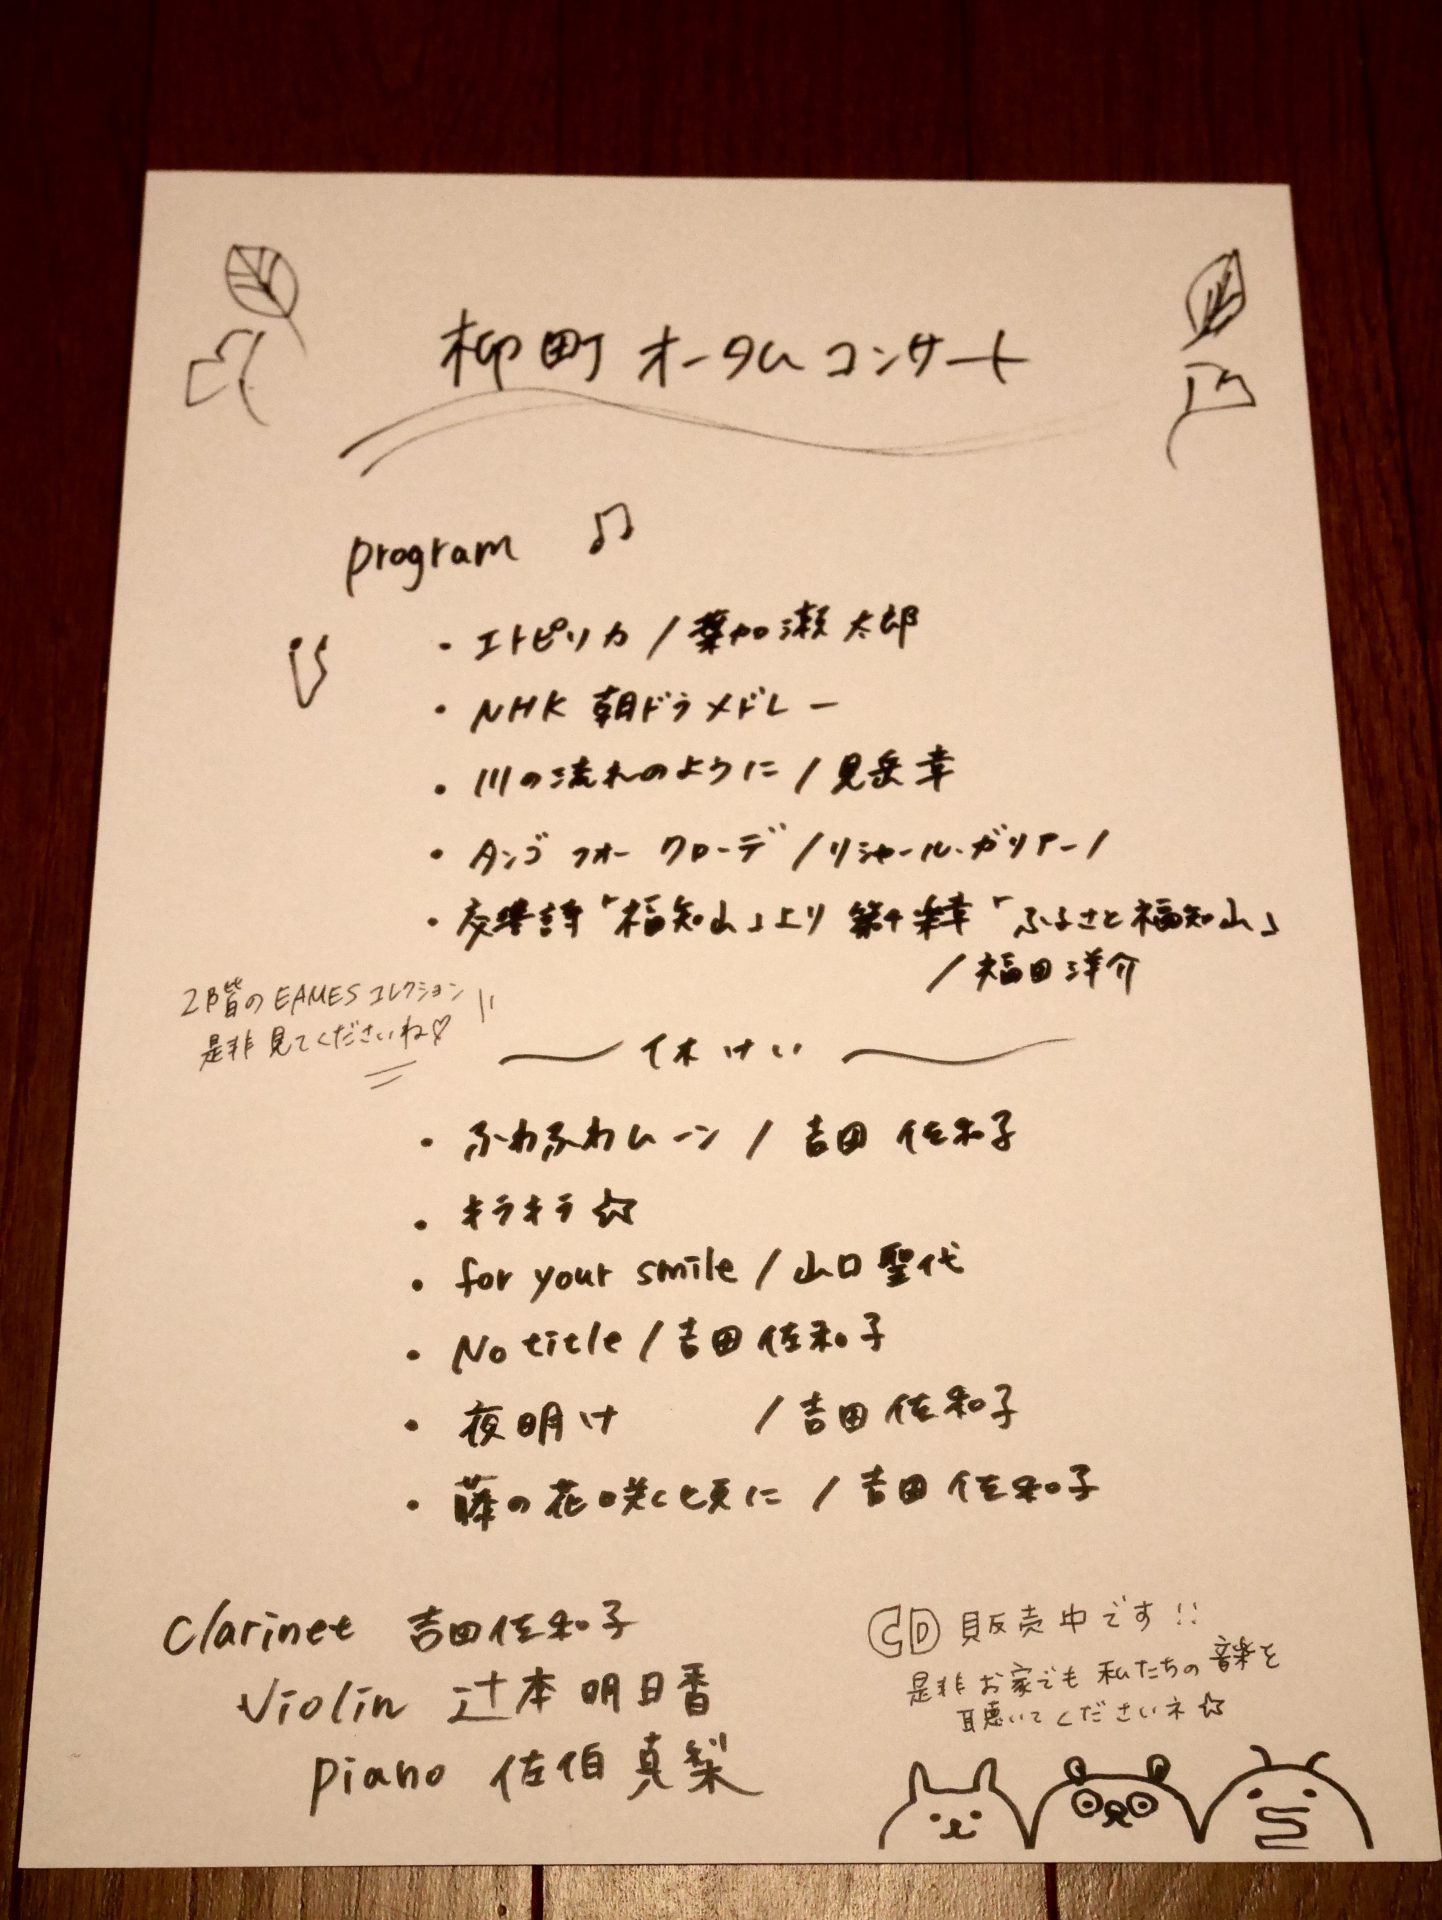 柳町 オータムコンサート
program ♫
・エトピリカ / 葉加瀬 太郎
・NHK 朝ドラメドレー
・川の流れのように / 見岳 章
・タンゴ フォー クローデ / リシャール・ガリアーノ
・交響詩「福知山」より 第4楽章「ふるさと福知山」
/ 福田 洋介
2階のEAMESコレクション
是非 見てくださいね♡
休けい
・ふわふわムーン / 吉田 佐和子
・キラキラ☆
・for your smile / 山口 聖代
・No title / 吉田 佐和子
・夜明け / 吉田 佐和子
・藤の花咲く頃に / 吉田 佐和子
Clarinet 吉田佐和子
Violin 辻本 明日香
piano 佐伯 真梨
CD 販売中です!!
是非 お家でも 私たちの 音楽を
聴いてくださいネ☆